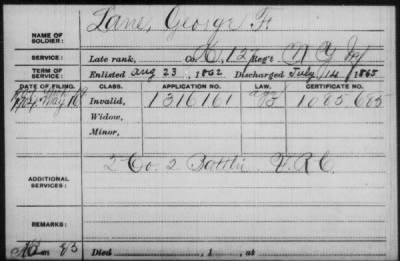 Lane, George F.
NAME OF SOLDIER:
SERVICE: Late rank, Co. H, 127 Reg't N Y Inf
TERM OF SERVICE: Enlisted Aug 23, 1862 Discharged July 14 1865
DATE OF FILING. CLASS. APPLICATION NO. LAW. CERTIFICATE NO.
May Invalid, 1316161 1085685
Widow,
Minor,
ADDITIONAL SERVICES: 2 Co. 2 Battln V.R.C.
REMARKS:
Died , 1 , at